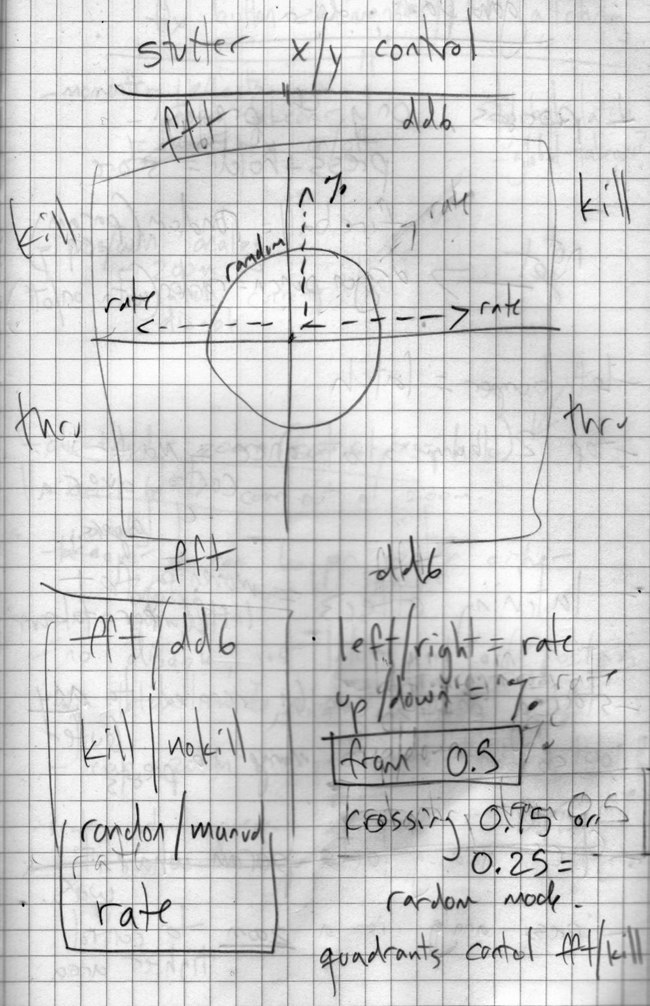 stutter x/y control
fft ddb
kill kill
%
random rate
rate rate
thru thru
fft ddb
fft/ddb
kill/nokill
random/manual
rate
left/right = rate
up/down = %
from 0.5
crossing 0.75 or
0.25 =
random mode.
quadrants control fft/kill